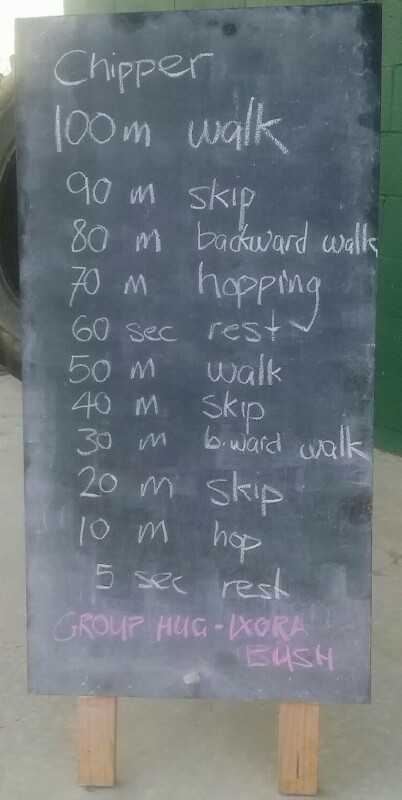 Chipper
100m walk
90 m skip
80 m backward walk
70 m hopping
60 sec rest
50 m walk
40 m skip
30 m b.ward walk
20 m skip
10 m hop
5 sec rest
GROUP HUG - IXORA
BUSH